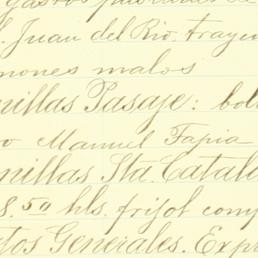 gastos
S. Juan del Rio. trayen
mones malos
nillas Pasaje: bol
o Manuel Tapia
nillas Sta. Catali
8.50 hls. frijol comp
tos Generales. Exp